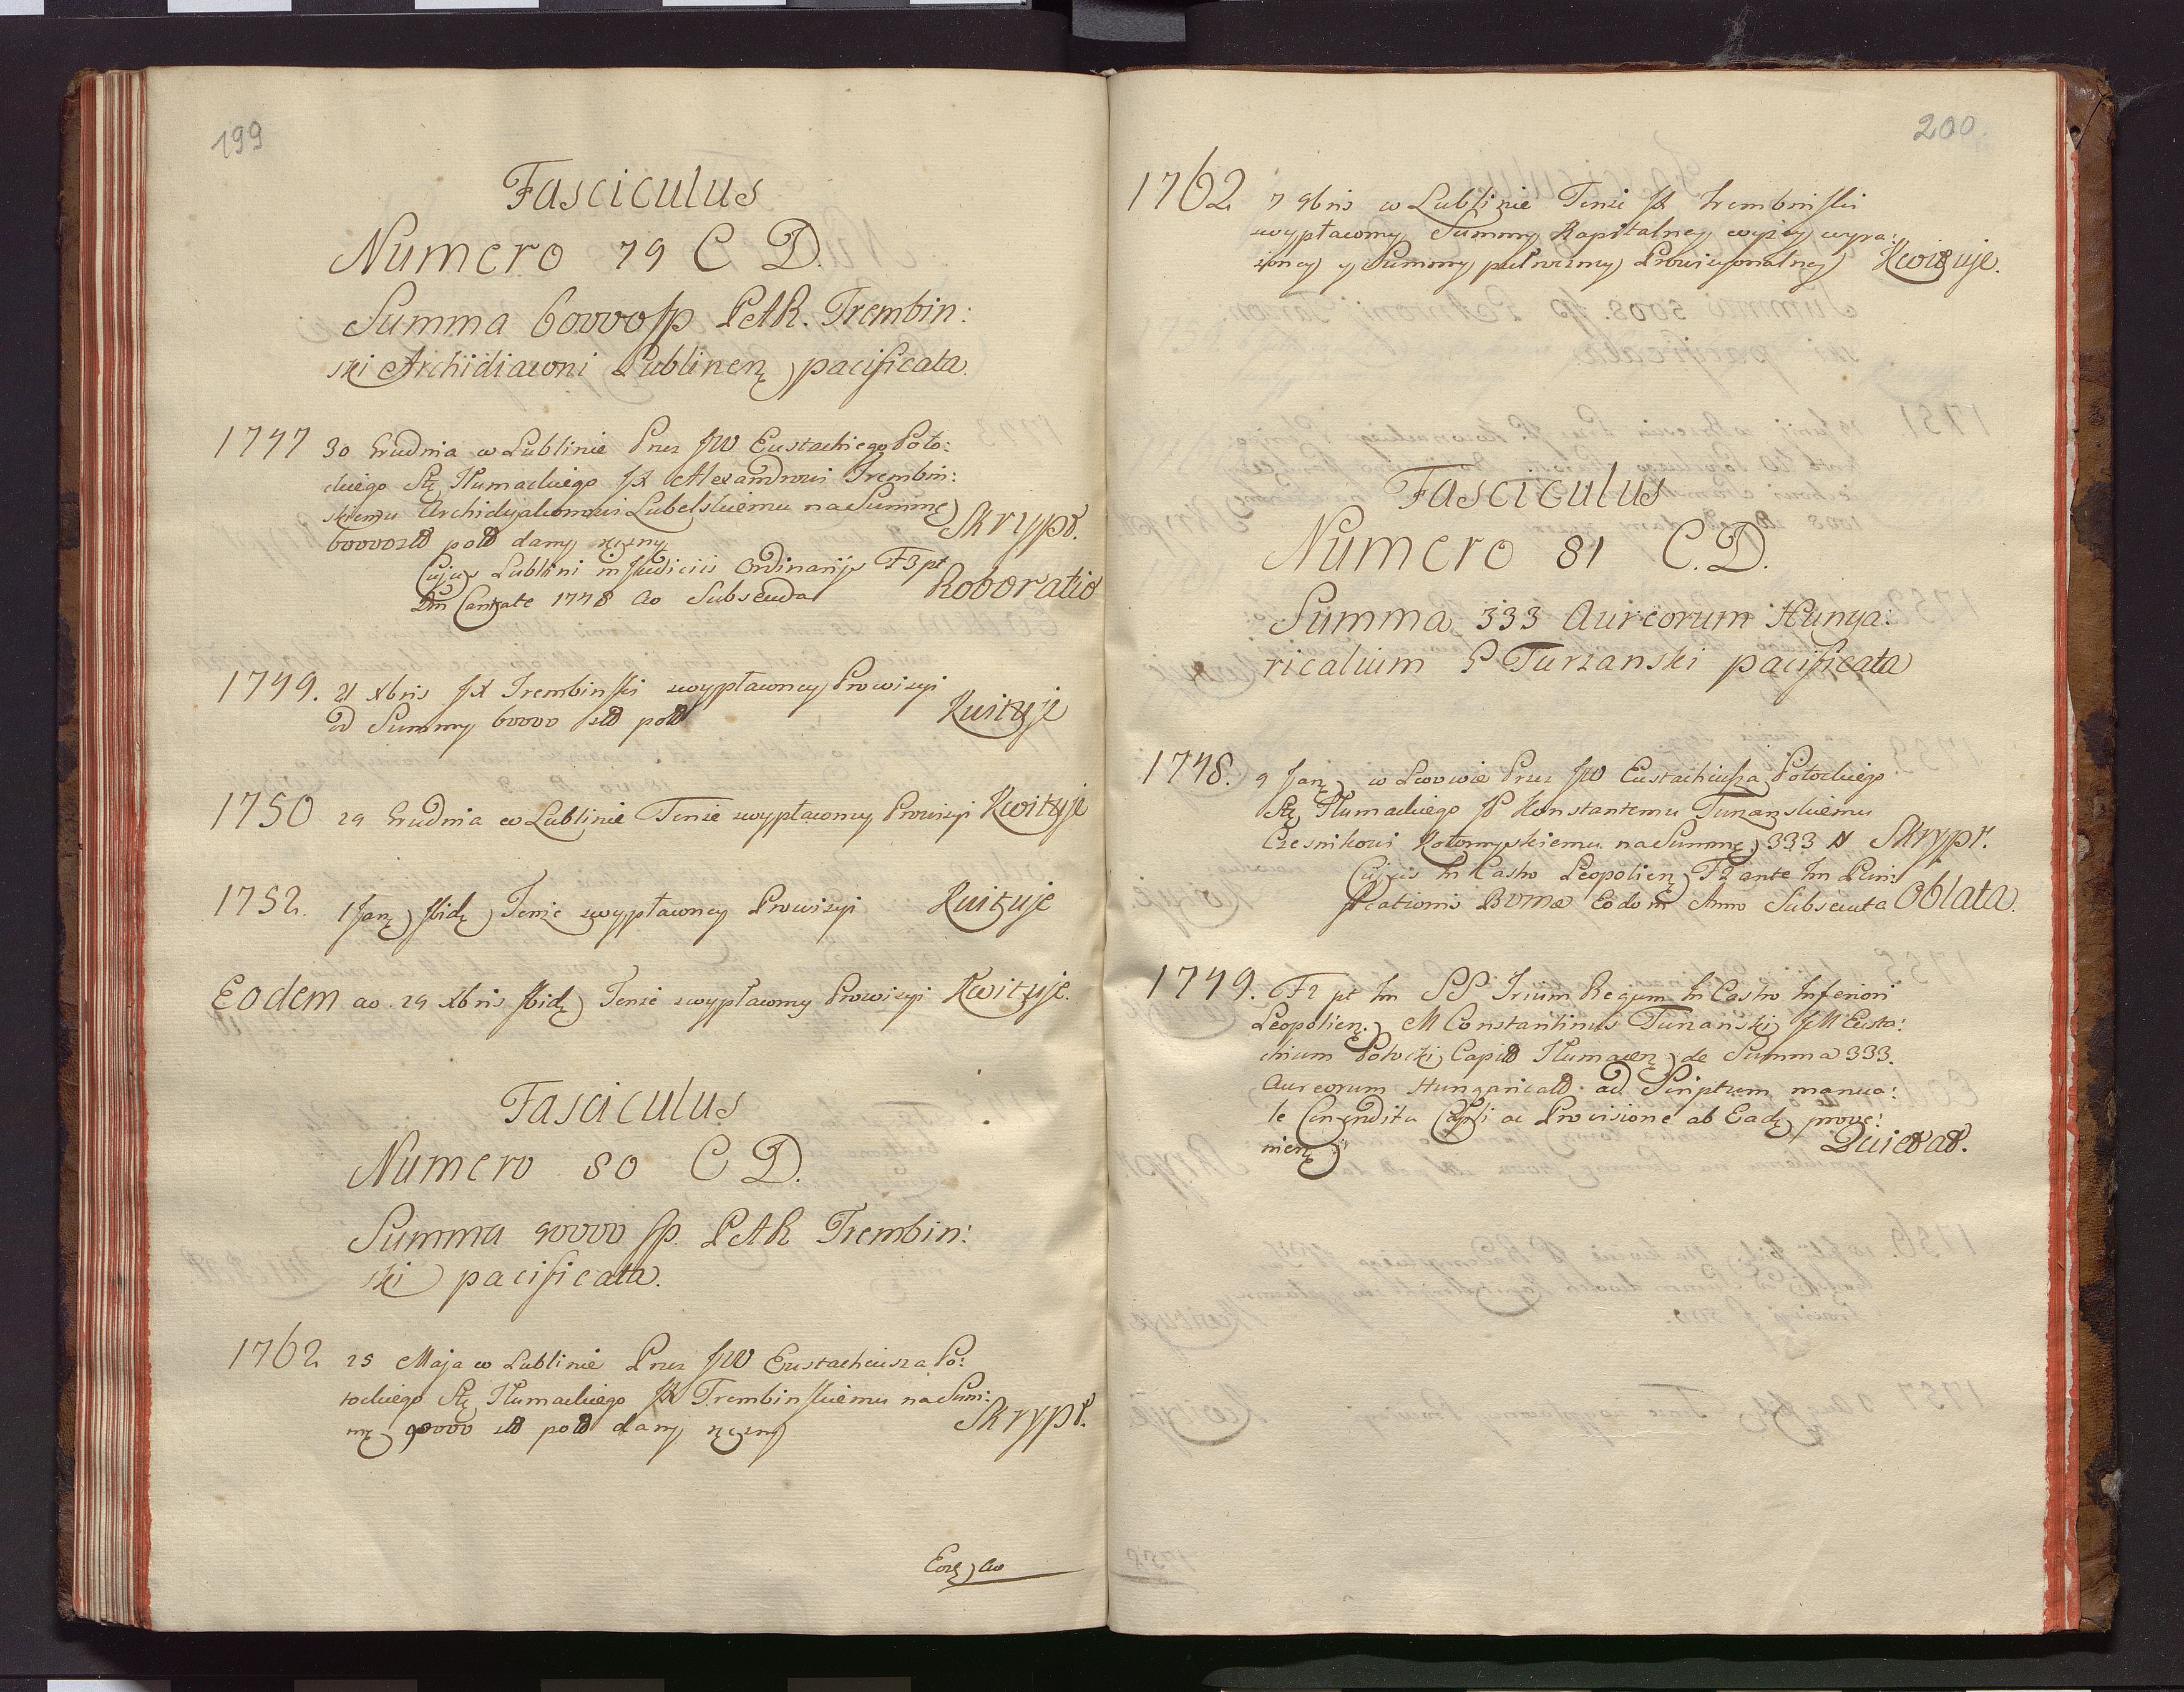 199
Fasciculus
Numero 79 C D.
Summa 60000 fp PAR. Trembin:
ski Archidiaconi Lublinen pacificata.
1747 30 Grudnia w Lublinie Prez JW Eustachiego Poto:
ckiego Stę Tłumackiego JX Alexandrowi Trembin:
skiemu Archidyakonowi Lubelskiemu na Summę
60000 zł pol dany ręczny Skrypt.
Cujus Lublini in Judiciis Ordinarijs F3 pt
Dm Cantate 1748 ao Subsecuta Roboratio
1749. 21 Xbris JX Trembinski z wypłaconey Prowizyi
od Summy 60000 zł pol Kwituje
1750 29 Grudnia w Lublinie Tenże z wypłaconey Prowizyi Kwituje
1752. 1 Janę Ibidę Tenże z wypłaconey Prowizyi Kwituje
Eodem ao 29 Xbris Ibidę Tenże z wypłaconey Prowizyi Kwituje.
Fasciculus
Numero 80 C D.
Summa 90000 fp. PAR Trembin:
ski pacificata.
1762 25 Maja w Lublinie Prez JW Eustachiusza Po:
tockiego Stę Tłumackiego JX Trembinskiemu na Sum:
mę 90000 zł pol dany ręczny Skrypt.
Eodę ao
200.
1762 7 9bris w Lublinie Tenże JX Trembinski
z wypłaconey Summy Kapitalney wyżey wyra:
żoney y Summy Prowizyonalney Kwituje.
Fasciculus
Numero 81 C.D.
Summa 333 Aureorum Hunga:
ricalium G Turzanski pacificata
1748. 9 Janę w Lwowie Prez JW Eustachiusza Potockiego
Stę Tłumackiego JP Konstantemu Turzanskiemu
Czesnikowi Kołomyskiemu na Summę 333 Skrypt.
Cujus in Castro Leopolien F2 ante Fm Puri:
ficationis BVMae Eodem Anno Subsecuta Oblata.
1749. F2 pt Fm SS Trium Regum in Castro Inferiori
Leopolien. M Constantinus Turzański JM Eusta:
chium Potocki Capit Tłumacen de Summa 333.
Aureorum Hungarical ad Scriptum manua:
le ac Provisione ab Eadę prove:
nien Quietat.